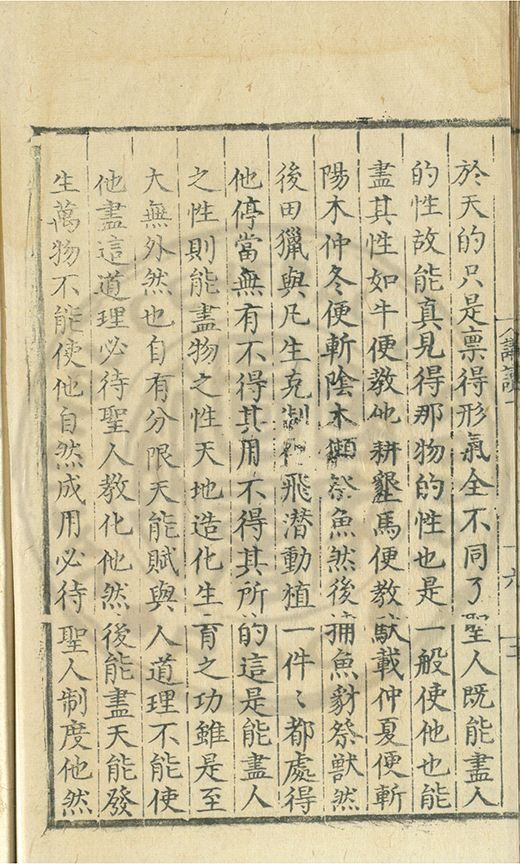 於天的只是稟得形氣全不同了聖人既能盡人
的性故能真見得那物的性也是一般使他也能
盡其性如牛便教他耕墾馬便教馱載仲夏便斬
陽木仲冬便斬陰木獺祭魚然後捕魚豺祭獸然
後田獵與凡生克制飛潜動植一件〻都處得
他停當無有不得其用不得其所的這是能盡人
之性則能盡物之性天地造化生育之功雖是至
大無外然也自有分限天能賦與人道理不能使
他盡這道理必待聖人教化他然後能盡天能發
生萬物不能使他自然成用必待聖人制度他然